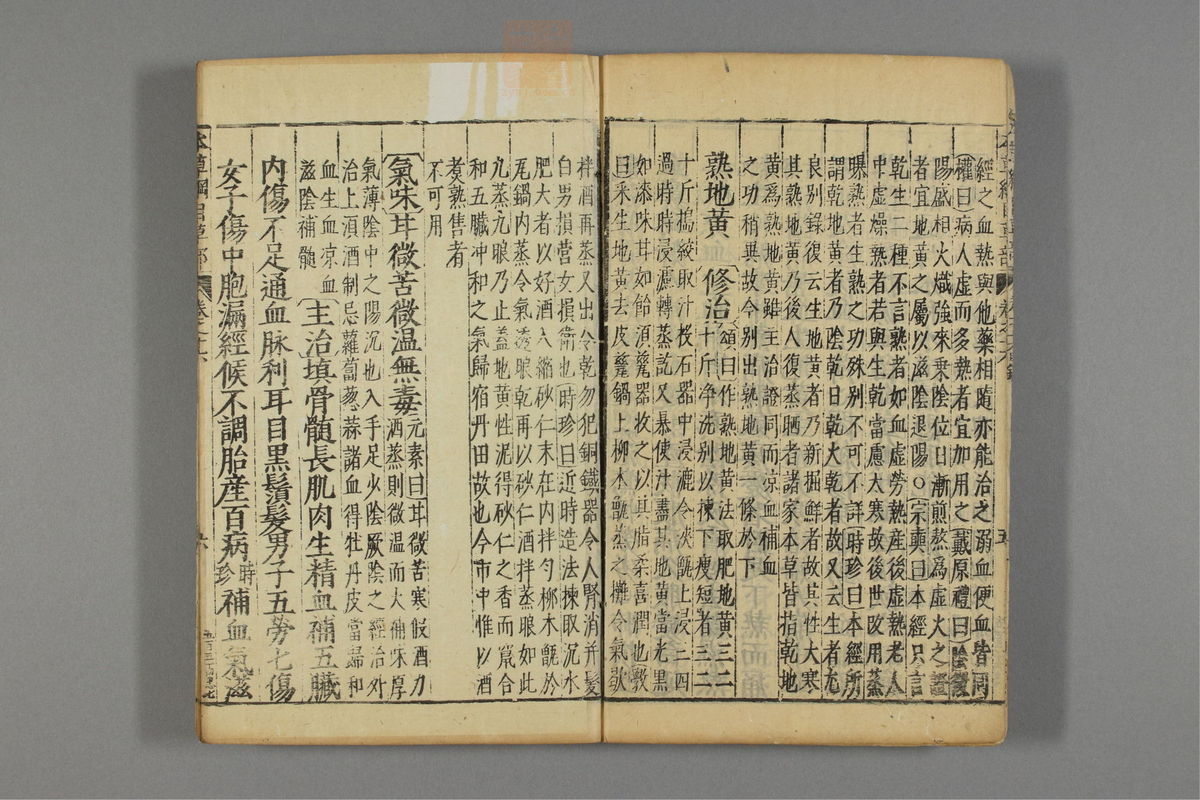 經之血熱與他藥相隨亦能治之溺血便血皆同
權曰病人虛而多熱者宜加用之戴原禮曰陰微
陽盛相火熾強來乗陰位日漸煎熬為虛火之證
者宜地黃之屬以滋陰退陽○宗奭曰本經只言
乾生二種不言熟者如血虛勞熱產後虛熱老人
中虛燥熱者若與生乾當慮太寒故後世改用蒸
曝熟者生熟之功殊别不可不詳時珍曰本經所
謂乾地黃者乃陰乾日乾火乾者故又云生者尤
良别錄復云生地黃者乃新掘鮮者故其性大寒
其熟地黃乃後人復蒸晒者諸家本草皆指乾地
黃為熟地黃雖主治證同而凉血補血
之功稍異故今别出熟地黃一條於下
熟地黃 修治頌曰作熟地黃法取肥地黃三二
十斤净洗别以揀下瘦短者三二
十斤搗絞取汁投石器中浸漉令浹甑上浸三四
過時時浸漉轉蒸訖又暴使汁盡其地黃當光黑
如漆味甘如飴須瓷器收之以其脂柔喜潤也斆
曰采生地黃去皮瓷鍋上柳木甑蒸之攤令氣歇
拌酒再蒸又出令乾勿犯銅鐵器令人腎消并髮
白男損營女損衛也時珍曰近時造法揀取沉水
肥大者以好酒入縮砂仁末在内拌勻柳木甑於
瓦鍋内蒸令氣透晾乾再以砂仁酒拌蒸晾如此
九蒸九晾乃止葢地黃性泥得砂仁之香而竄合
和五臟冲和之氣歸宿丹田故也今市中惟以酒
煑熟售者
不可用
氣味甘微苦微温無毒元素曰甘微苦寒假酒力
洒蒸則微温而大補味厚
氣薄陰中之陽沉也入手足少陰厥陰之經治外
治上須酒制忌蘿蔔葱蒜諸血得牡丹皮當歸和
血生血凉血
滋陰補髓
主治填骨髓長肌肉生精血補五臟
内傷不足通血脉利耳目黑鬚髮男子五勞七傷
女子傷中胞漏經候不調胎產百病時珍補血氣滋